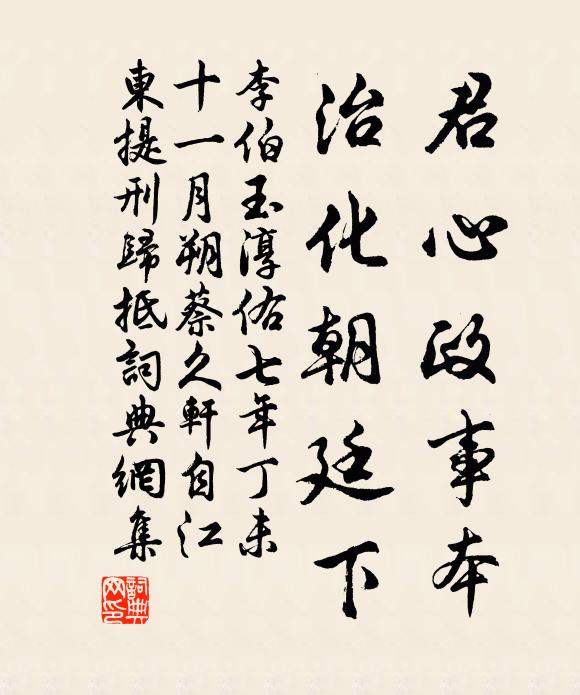 君心政事本
治化朝廷下
李伯玉淳佑七年丁未
十一月朔蔡久軒自江
東提刑歸抵詞典網集
詞典網印